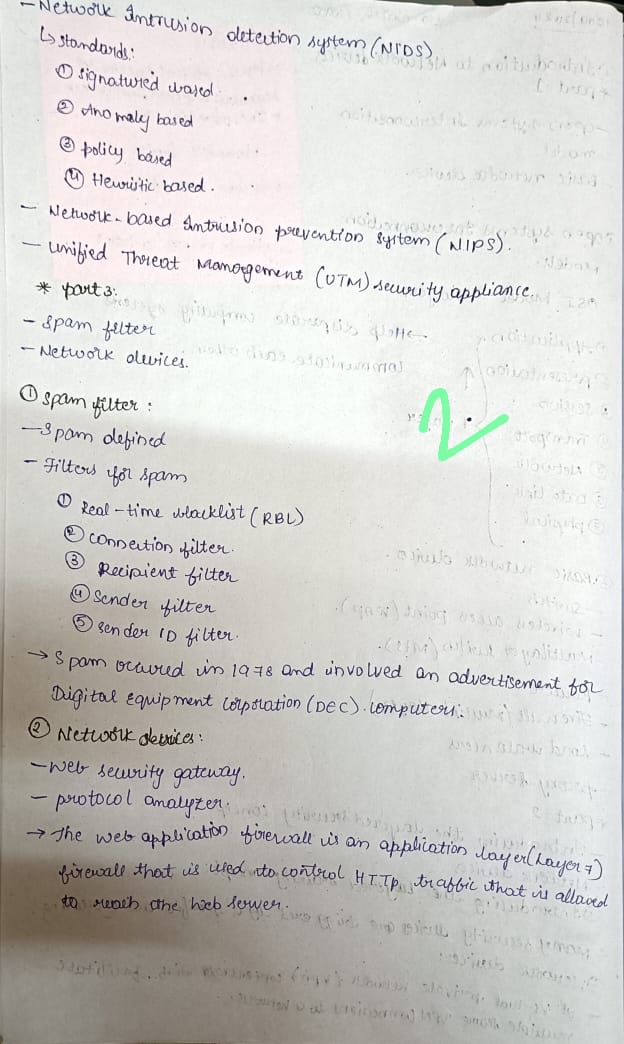 - Network Intrusion detection system (NIDS)
↳ standards:
① signatured wased.
② Anomaly based
③ policy based
④ Heuristic based.
- Network-based Intrusion prevention system (NIPS).
- unified Threat Management (UTM) security appliance.
* part 3:
- Spam filter
- Network devices.
① Spam filter:
- Spam defined
- Filters for spam
① Real-time blacklist (RBL)
② connection filter.
③ Recipient filter
④ Sender filter
⑤ Sender ID filter.
→ Spam occured in 1978 and involved an advertisement for
Digital Equipment Corporation (DEC) computers.
② Network devices:
- Web security gateway.
- protocol analyzer.
→ The web application firewall is an application layer (Layer 7)
firewall that is used to control HTTP traffic that is allowed
to reach the web server.
2